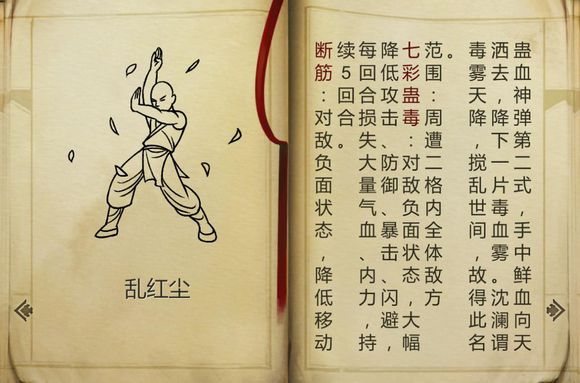 乱红尘
蛊血神弹第二式，手中鲜血向天
洒去，降下一片毒血雾。沈澜谓
毒雾天降，搅乱世间，故得此名
。
范围：周遭二格内全体敌方
七彩蛊毒：对敌负面状态，大幅
降低攻击、防御、暴击、闪避，
每回合损失大量气血、内力，持
续5回合。
断筋：对敌负面状态，降低移动